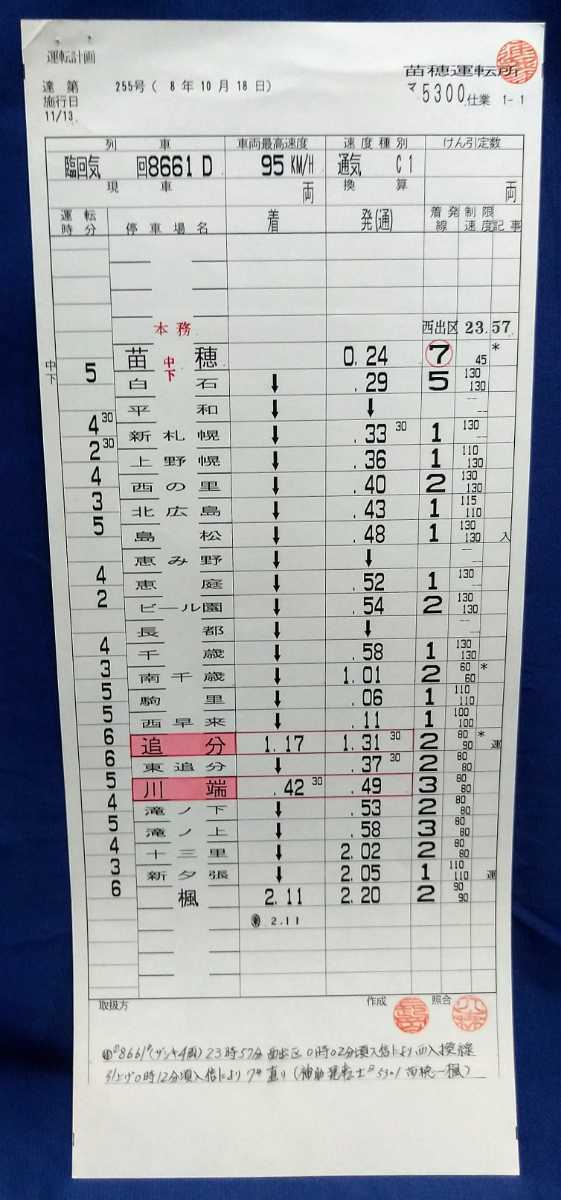 運転計画
達 第 255号 ( 8 年 10 月 18 日)
施行日
11/13
苗穂運転所
マ 5300 仕業 1-1
列 車 車両最高速度 速度種別 けん引定数
臨回気 回8661D 95 KM/H 通気 C1
現 車 両 換 算 両
運転時分 停車場名 着 発(通) 着発線 制限速度 記事
本務 西出区 23.57
苗穂 中下 0.24 7 45 *
中下 5
白石 ↓ .29 5 130 130
平和 ↓ ↓
4 30
新札幌 ↓ .33 30 1 130
2 30
上野幌 ↓ .36 1 110 130
4
西の里 ↓ .40 2 130 130
3
北広島 ↓ .43 1 115 110
5
島松 ↓ .48 1 130 130 入
恵み野 ↓ ↓
4
恵庭 ↓ .52 1 130
2
ビール園 ↓ .54 2 130 130
長都 ↓ ↓
4
千歳 ↓ .58 1 130 130
3
南千歳 ↓ 1.01 2 60 60 *
5
駒里 ↓ .06 1 110 110
5
西早来 ↓ .11 1 100 100
6
追分 1.17 1.31 30 2 80 90 * 運
6
東追分 ↓ .37 30 2 80 80
5
川端 .42 30 .49 3 80 80
4
滝ノ下 ↓ .53 2 80 80
5
滝ノ上 ↓ .58 3 80 80
4
十三里 ↓ 2.02 2 80 80
3
新夕張 ↓ 2.05 1 110 110 運
6
楓 2.11 2.20 2 90 90
2.11
取扱方 作成 照合
8661 23時57分 西出区 0時02分頃入信により
0時12分頃入信により 7番